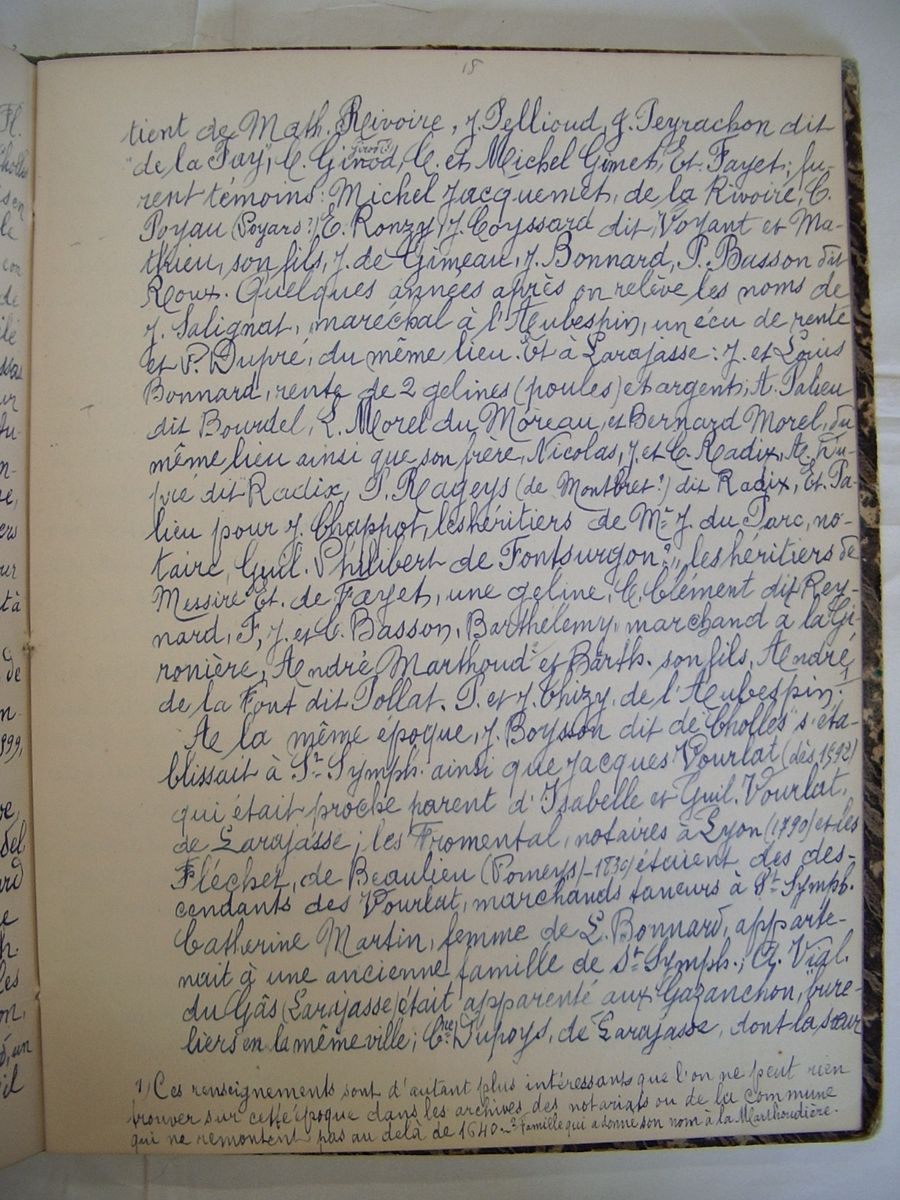 18
tient de Math. Rivoire, J. Pellioud, J. Peyrachon dit
"de la Fay", C. Girod, C. et Michel Gimet, Et. Fayet; fu-
rent témoins: Michel Jacquemet, de la Rivoire, C.
Poyau (Poyard?), E. Ronzy, J. Coyssard dit Voyant et Ma-
thieu, son fils, J. de Gimeau, J. Bonnard, P. Basson dit
Roux. Quelques années après on relève les noms de
J. Salignat, maréchal à l'Aubespin, un écu de rente
et P. Dupré, du même lieu. Et à Larajasse: J. et Louis
Bonnard, rente de 2 gelines (poules) et argent, A. Palieu
dit Bourdel, L. Morel du Moreau, et Bernard Morel, du
même lieu ainsi que son frère, Nicolas, J. et C. Radix, A. Du-
pré dit Radix, P. Rageys (de Montbret?) dit Radix, Et. Pa-
lieu pour J. Chappot, les héritiers de Me J. du Parc, no-
taire, Guil. Philibert de Fontsurgon?, les héritiers de
Messire Et. de Fayet, une geline, C. Clément dit Rey-
nard, F, J. et C. Basson, Barthélemy, marchand à la Gi-
ronière, André Marthoud 2 et Barth. son fils, André
de la Font dit Pollat. P. et J. Chizy, de l'Aubespin. 1
A la même époque, J. Boysson dit de Cholles" s'éta-
blissait à St. Symph. ainsi que Jacques Vourlat (dès 1592)
qui était proche parent d'Isabelle et Guil. Vourlat,
de Larajasse; les Fromental, notaires à Lyon (1790) et les
Fléchet, de Beaulieu (Pomeys)-1830) étaient des des-
cendants des Vourlat, marchands taneurs à St. Symph.
Catherine Martin, femme de L. Bonnard, apparte-
nait à une ancienne famille de St. Symph.; A. Vial.
du Gâs (Larajasse) était apparenté aux Gazanchon, bure-
liers en la même ville; Cne. Dupoys, de Larajasse, dont la sœur
1) Ces renseignements sont d'autant plus intéressants que l'on ne peut rien
trouver sur cette époque dans les archives des notariats ou de la commune
qui ne remontent pas au delà de 1640. - 2 Famille qui a donné son nom à la Marthoudière.